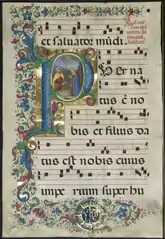 et salvator mūdi.
P Uer na
tus ē no
bis et filius da
tus est nobis cuius
impe rium super hu